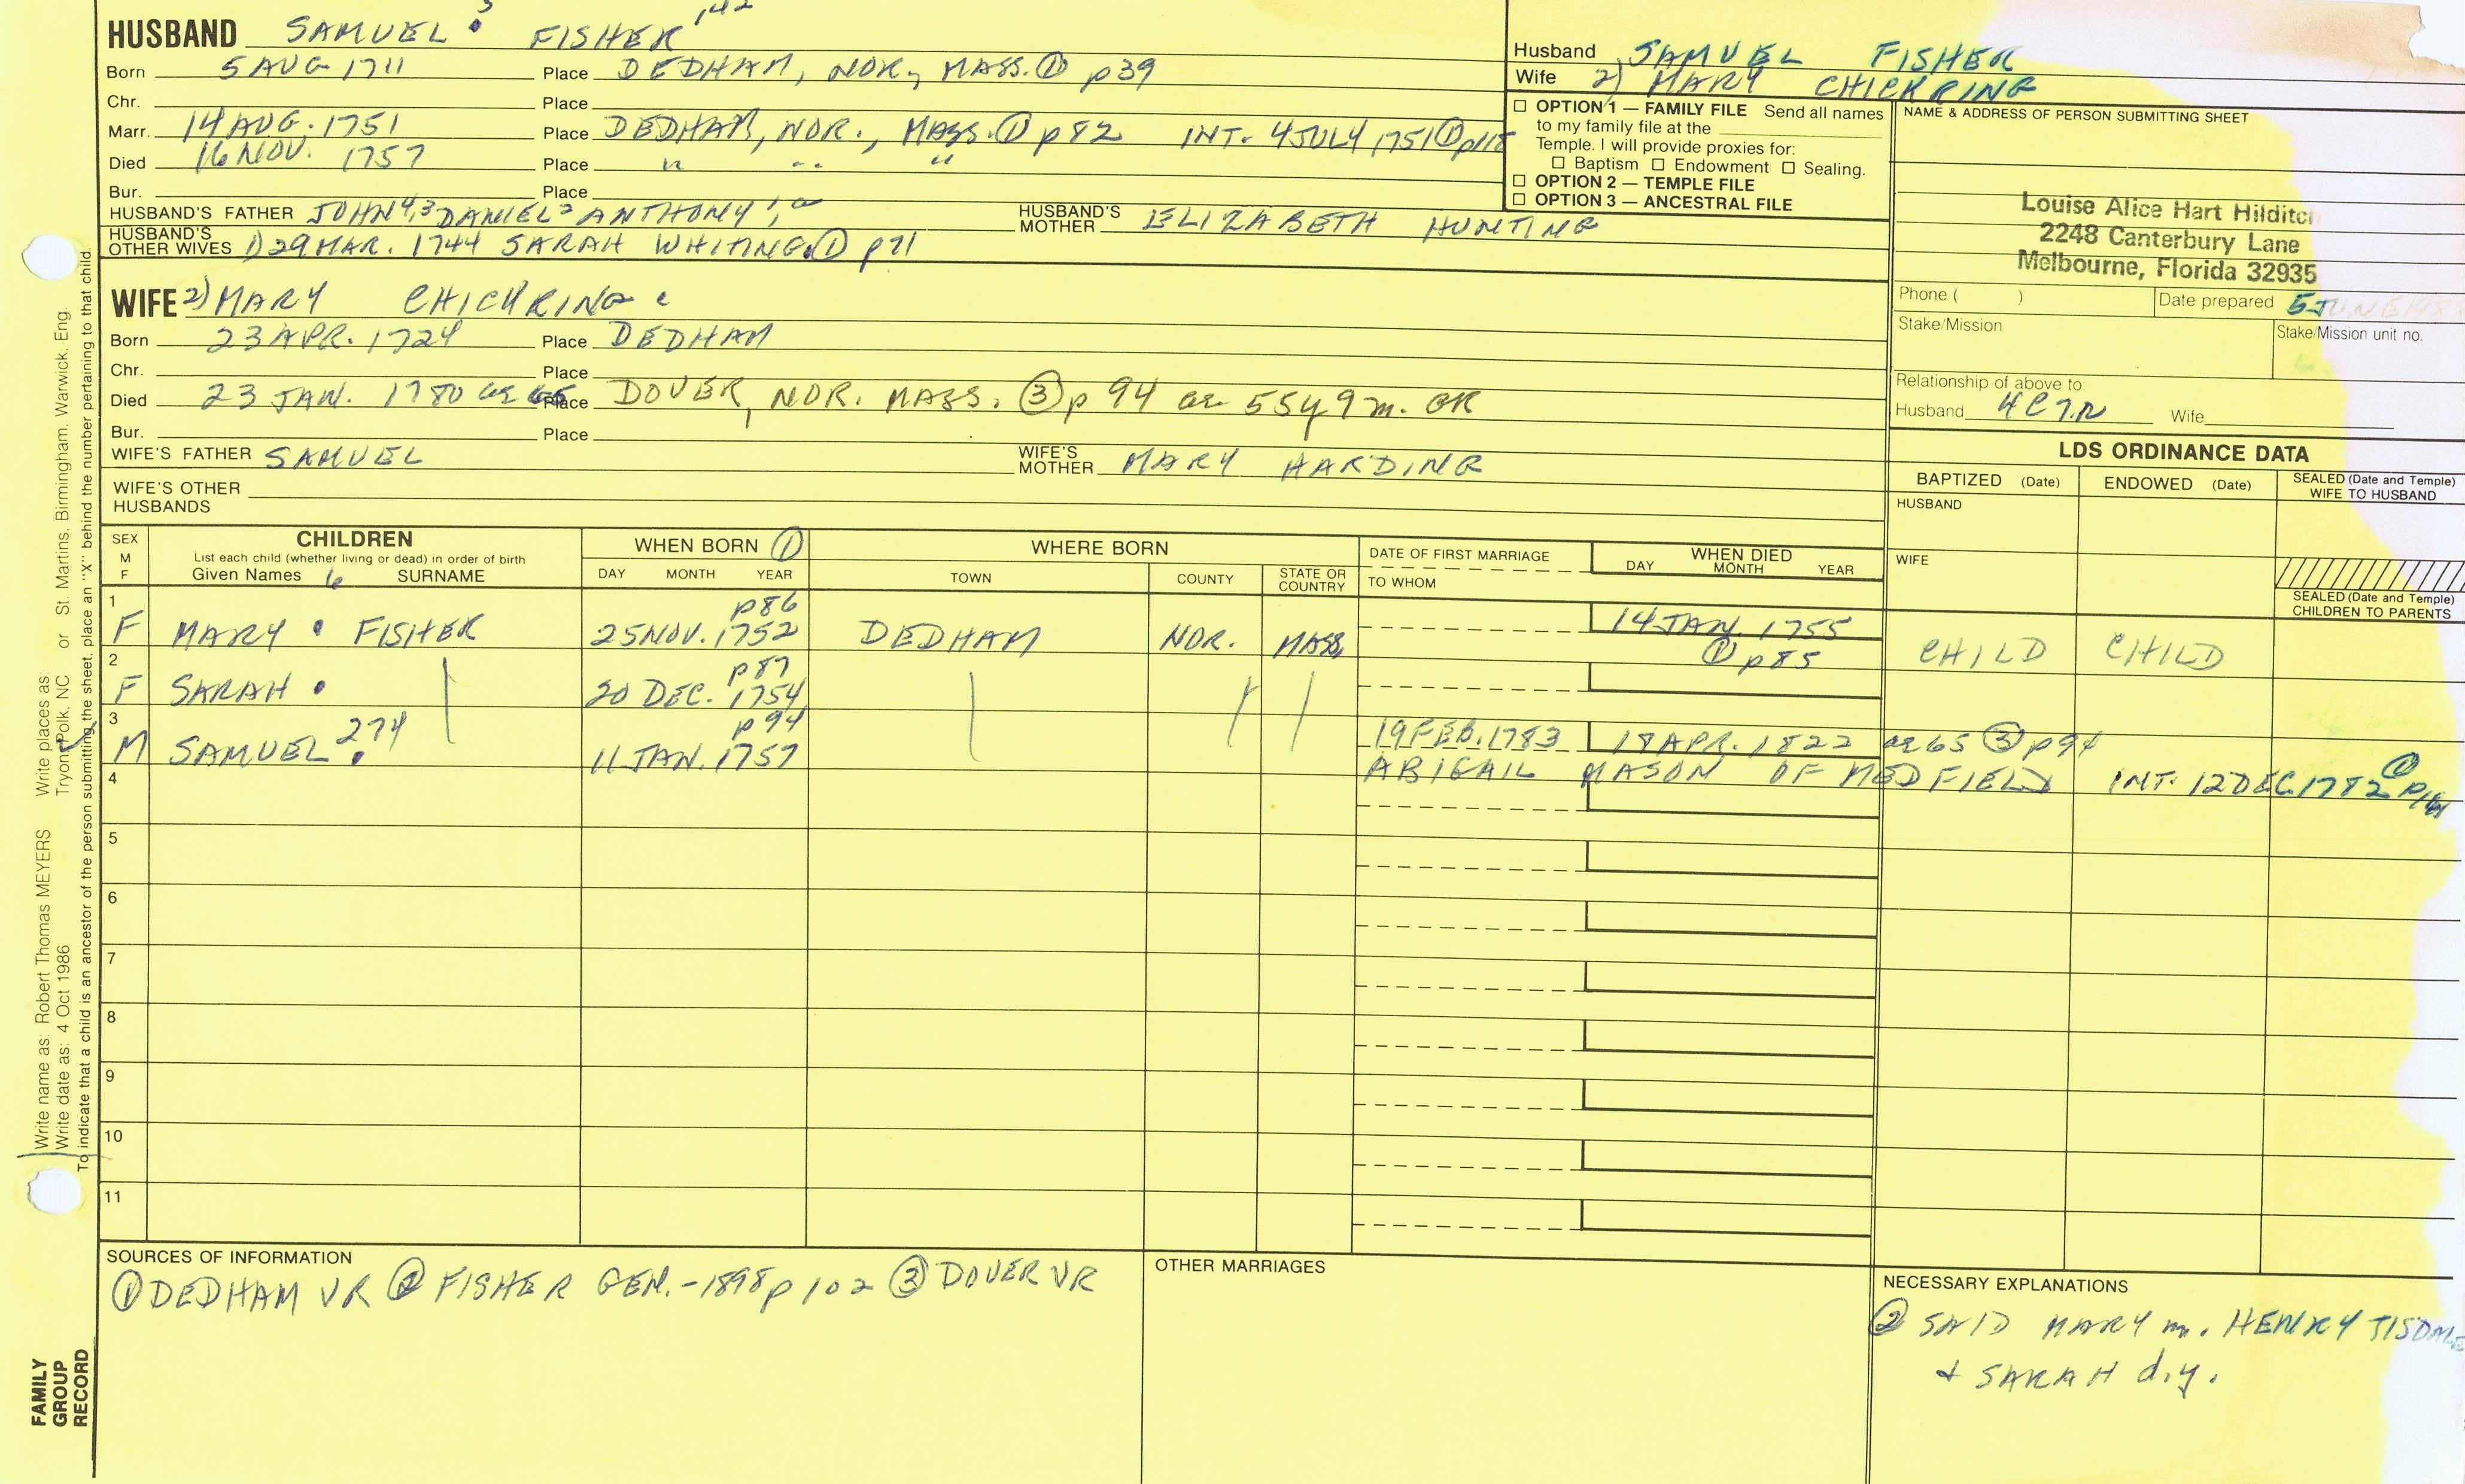 HUSBAND SAMUEL 5 FISHER 142
Born 5 AUG 1711 Place DEDHAM, NOR., MASS. ① p39
Chr. Place
Marr. 14 AUG. 1751 Place DEDHAM, NOR., MASS. ① p82 INT. 4 JULY 1751 ① p115
Died 16 NOV. 1757 Place " " "
Bur. Place
HUSBAND'S FATHER JOHN 4,3 DANIEL 2 ANTHONY 1, HUSBAND'S MOTHER ELIZABETH HUNTING
HUSBAND'S OTHER WIVES 1) 29 MAR. 1744 SARAH WHITING. ① p71
WIFE 2) MARY CHICKRING
Born 23 APR. 1724 Place DEDHAM
Chr. Place
Died 23 JAN. 1780 ae 65 Place DOVER, NOR. MASS. ③ p 94 ae 55y 9m. GR
Bur. Place
WIFE'S FATHER SAMUEL WIFE'S MOTHER MARY HARDING
WIFE'S OTHER HUSBANDS
Husband SAMUEL FISHER
Wife 2) MARY CHICKRING
☐ OPTION 1 — FAMILY FILE Send all names
to my family file at the
Temple. I will provide proxies for:
☐ Baptism ☐ Endowment ☐ Sealing.
☐ OPTION 2 — TEMPLE FILE
☐ OPTION 3 — ANCESTRAL FILE
NAME & ADDRESS OF PERSON SUBMITTING SHEET
Louise Alice Hart Hilditch
2248 Canterbury Lane
Melbourne, Florida 32935
Phone ( ) Date prepared 5 JUNE
Stake/Mission Stake/Mission unit no.
Relationship of above to:
Husband 4C7R Wife
LDS ORDINANCE DATA
BAPTIZED (Date) ENDOWED (Date) SEALED (Date and Temple) WIFE TO HUSBAND
HUSBAND
WIFE
SEALED (Date and Temple)
CHILDREN TO PARENTS
SEX M F
CHILDREN
List each child (whether living or dead) in order of birth
Given Names 6 SURNAME
WHEN BORN ①
DAY MONTH YEAR
WHERE BORN
TOWN COUNTY STATE OR COUNTRY
DATE OF FIRST MARRIAGE
TO WHOM
WHEN DIED
DAY MONTH YEAR
1 p86
F MARY FISHER 25 NOV. 1752 DEDHAM NOR. MASS. 14 JAN. 1755 ① p85 CHILD CHILD
2 p87
F SARAH 20 DEC. 1754
3 p94
M SAMUEL 274 11 JAN. 1757 19 FEB. 1783 18 APR. 1822 ae 65 ③ p94
ABIGAIL MASON OF MEDFIELD INT. 12 DEC. 1782 ①
4
5
6
7
8
9
10
11
SOURCES OF INFORMATION
① DEDHAM VR ② FISHER GEN. -1898 p 102 ③ DOVER VR
OTHER MARRIAGES
NECESSARY EXPLANATIONS
② SAID MARY m. HENRY TISDALE
+ SARAH d.y.
Write name as: Robert Thomas MEYERS Write places as: Tryon, Polk, NC or St. Martins, Birmingham, Warwick, Eng.
Write date as: 4 Oct 1986
To indicate that a child is an ancestor of the person submitting the sheet, place an "X" behind the number pertaining to that child.
FAMILY
GROUP
RECORD